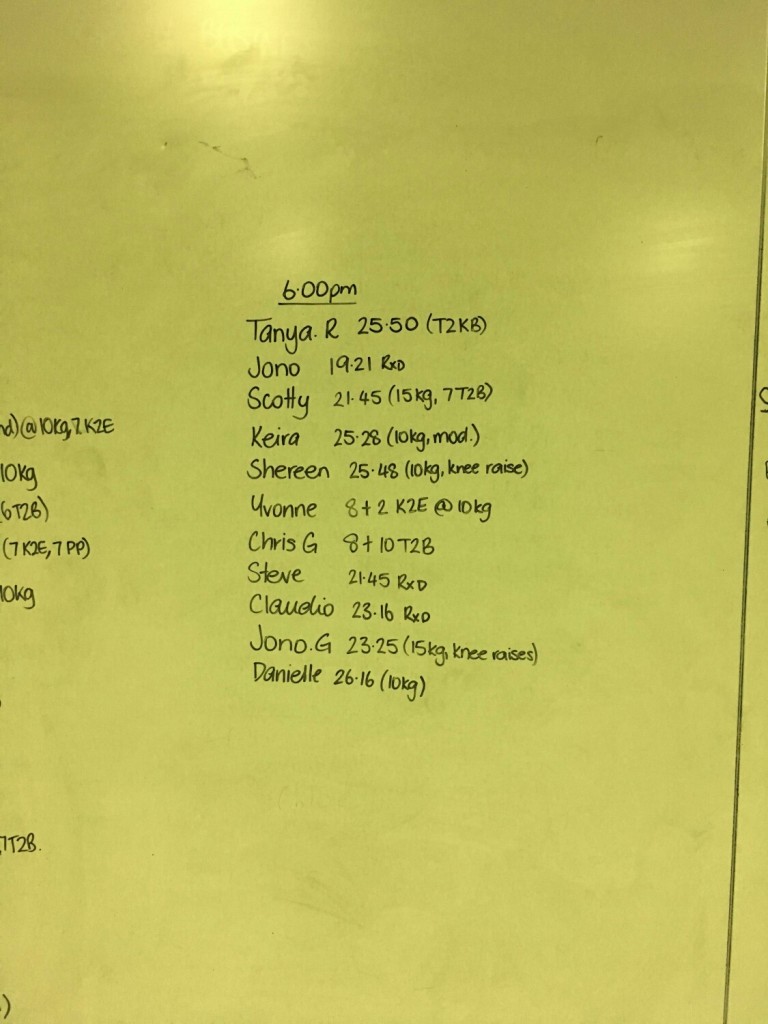 6.00pm
Tanya. R 25.50 (T2KB)
Jono 19.21 RxD
Scotty 21.45 (15kg, 7 T2B)
Keira 25.28 (10kg, mod.)
Shereen 25.48 (10kg, knee raise)
Yvonne 8+2 K2E @ 10kg
Chris G 8+10 T2B
Steve 21.45 RxD
Claudio 23.16 RxD
Jono.G 23.25 (15kg, knee raises)
Danielle 26.16 (10kg)
nd)@10kg, 7 K2E
10kg
6T2B)
(7 K2E, 7 PP)
10kg
7T2B.
)